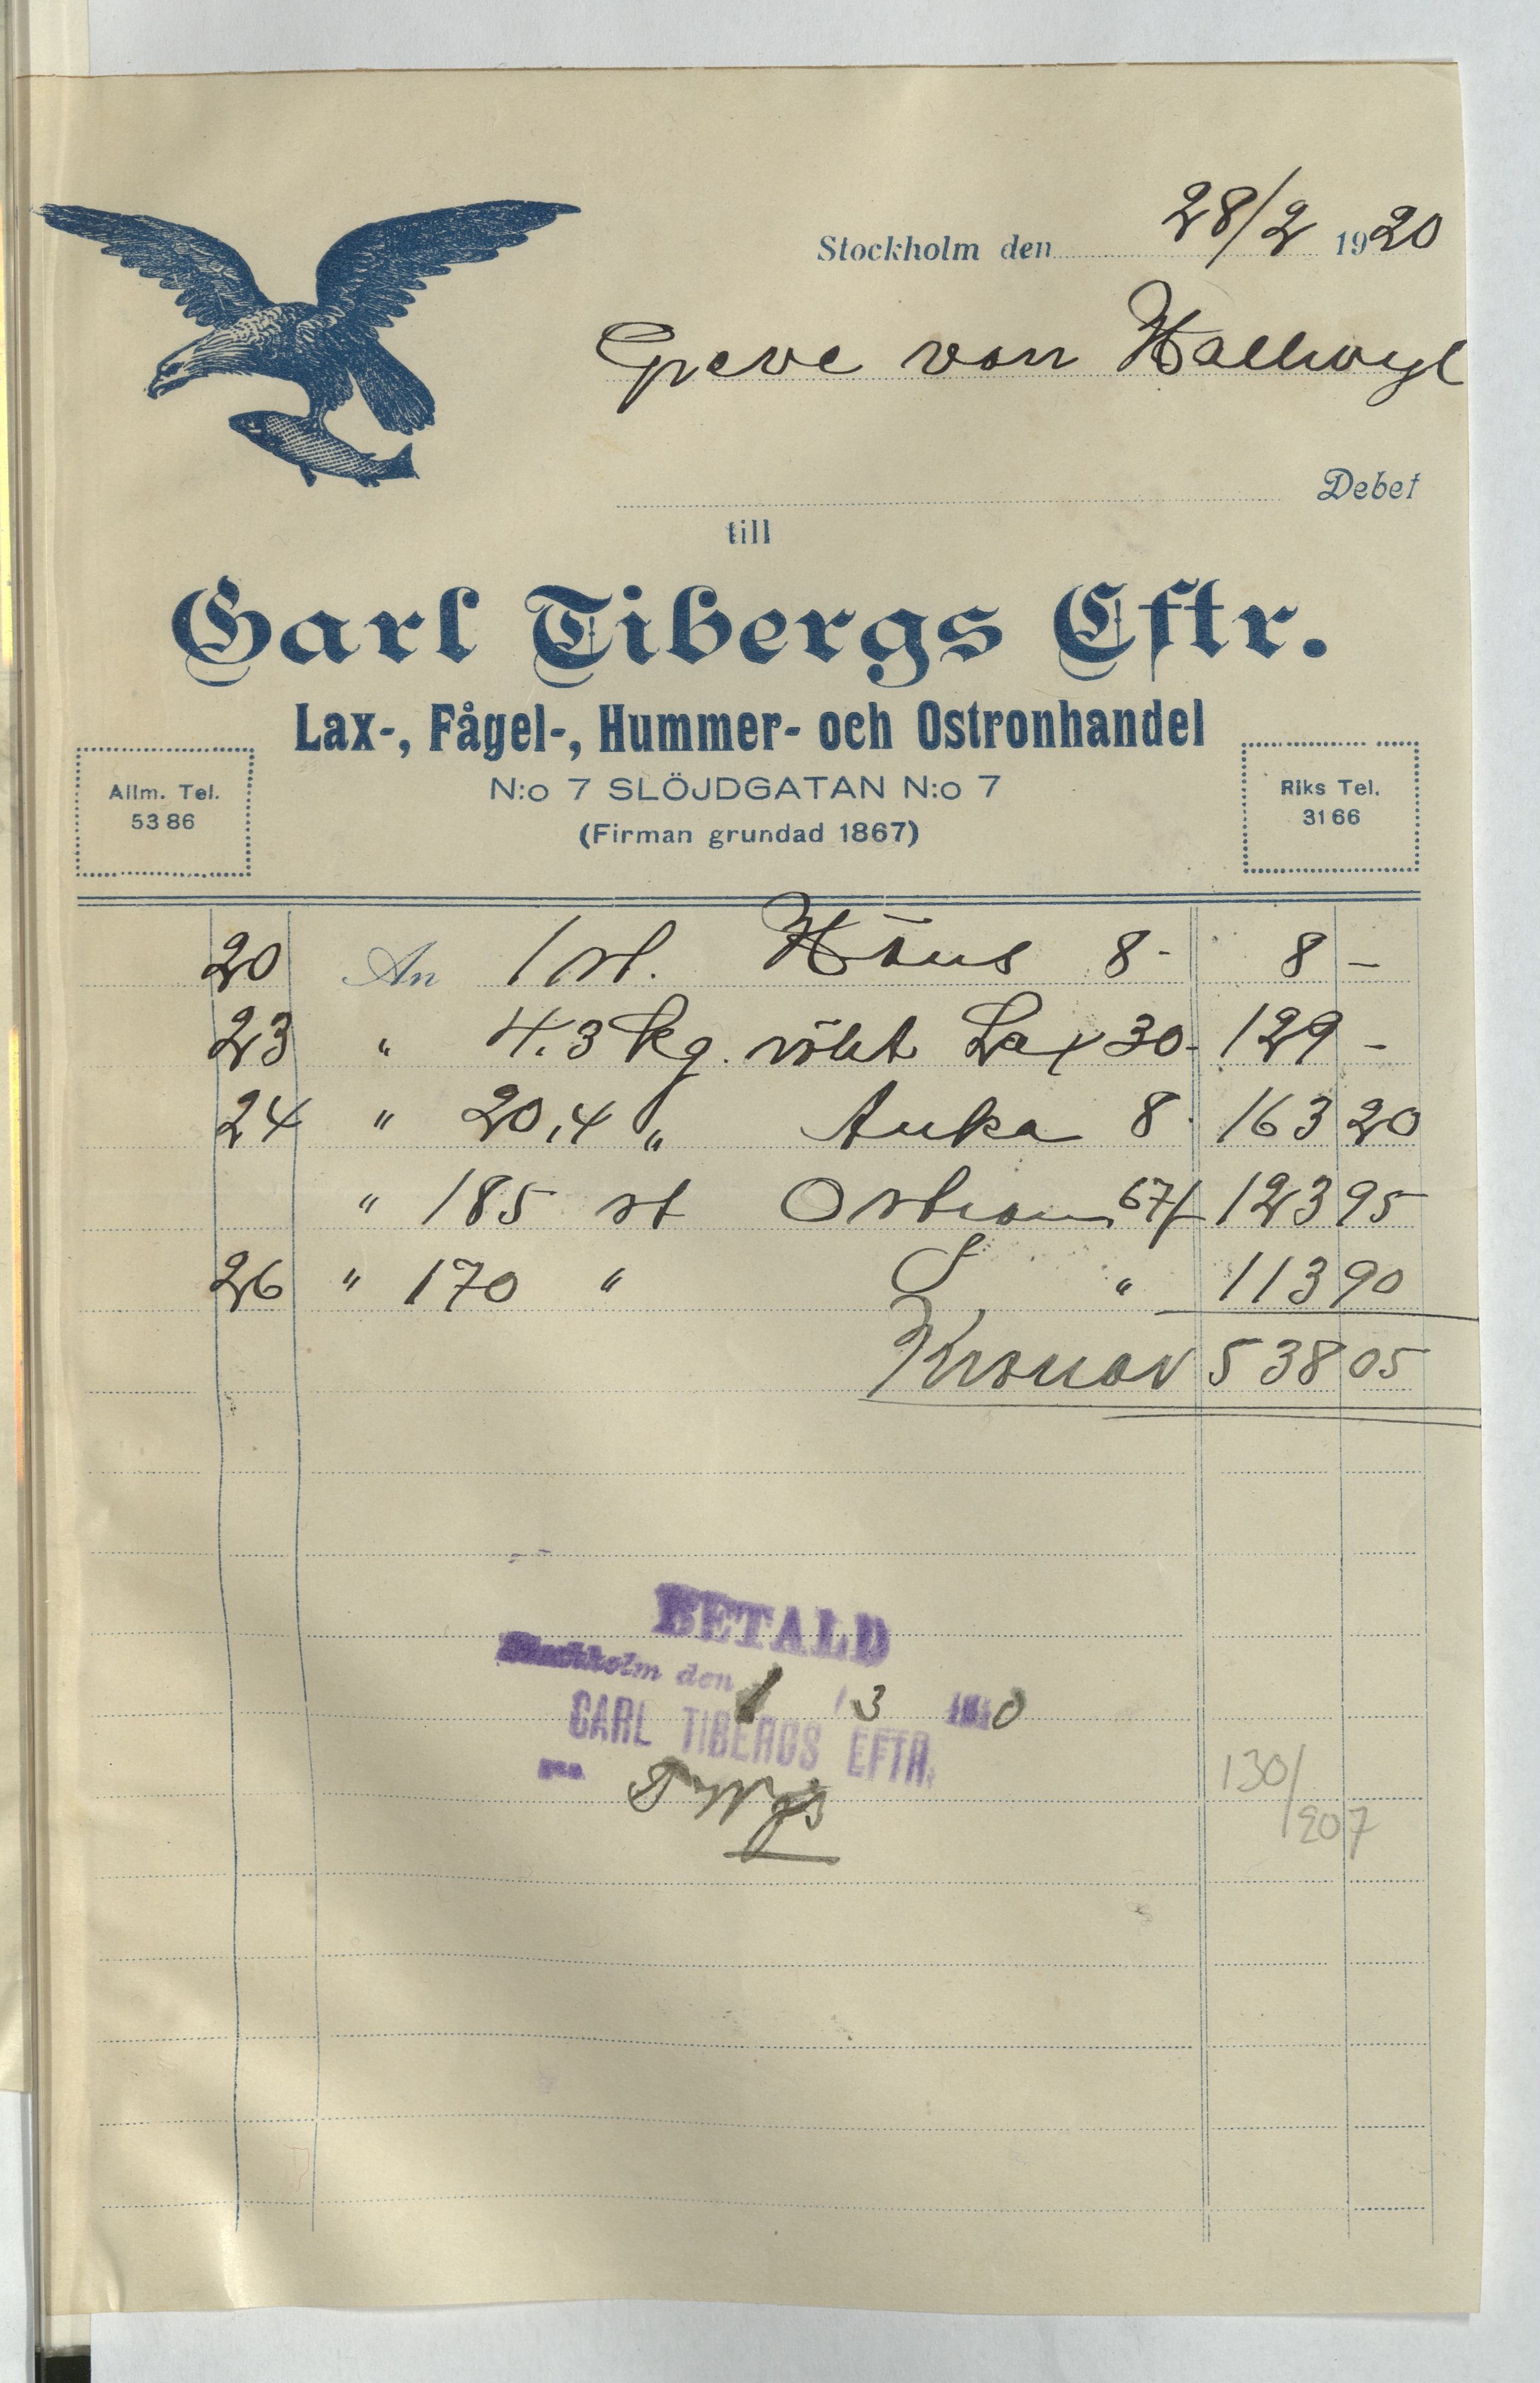 Stockholm den 28/2 1920
Greve von Hallwyl
Debet
till
Carl Tibergs Eftr.
Lax-, Fågel-, Hummer- och Ostronhandel
N:o 7 SLÖJDGATAN N:o 7
(Firman grundad 1867)
Allm. Tel.
53 86
Riks Tel.
31 66
20 An 1 st. Höns 8- 8 -
23 " 4.3 kg. rökt Lax 30- 129 -
24 " 20,4 " Anka 8 163 20
" 185 st Ostron 67/ 123 95
26 " 170 " " 113 90
Kronor 538 05
BETALD
Stockholm den 1 / 3
CARL TIBERGS EFTR.
130/
207